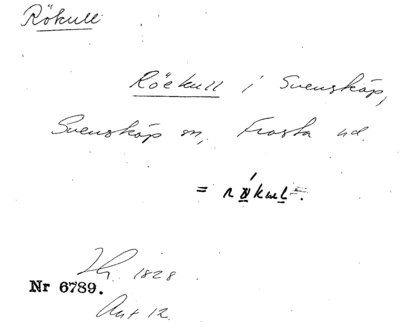 Rökull
Röekull i Svensköp,
Svensköp sn, Frosta hd.
=
1828
Nr 6789.
Ant 12